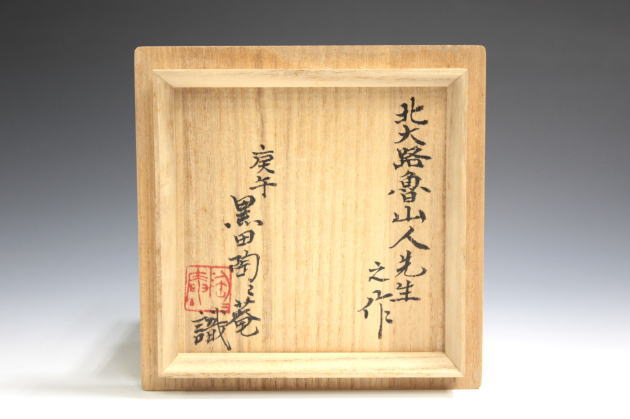 北大路魯山人先生
之作
庚午
黒田陶々菴
識